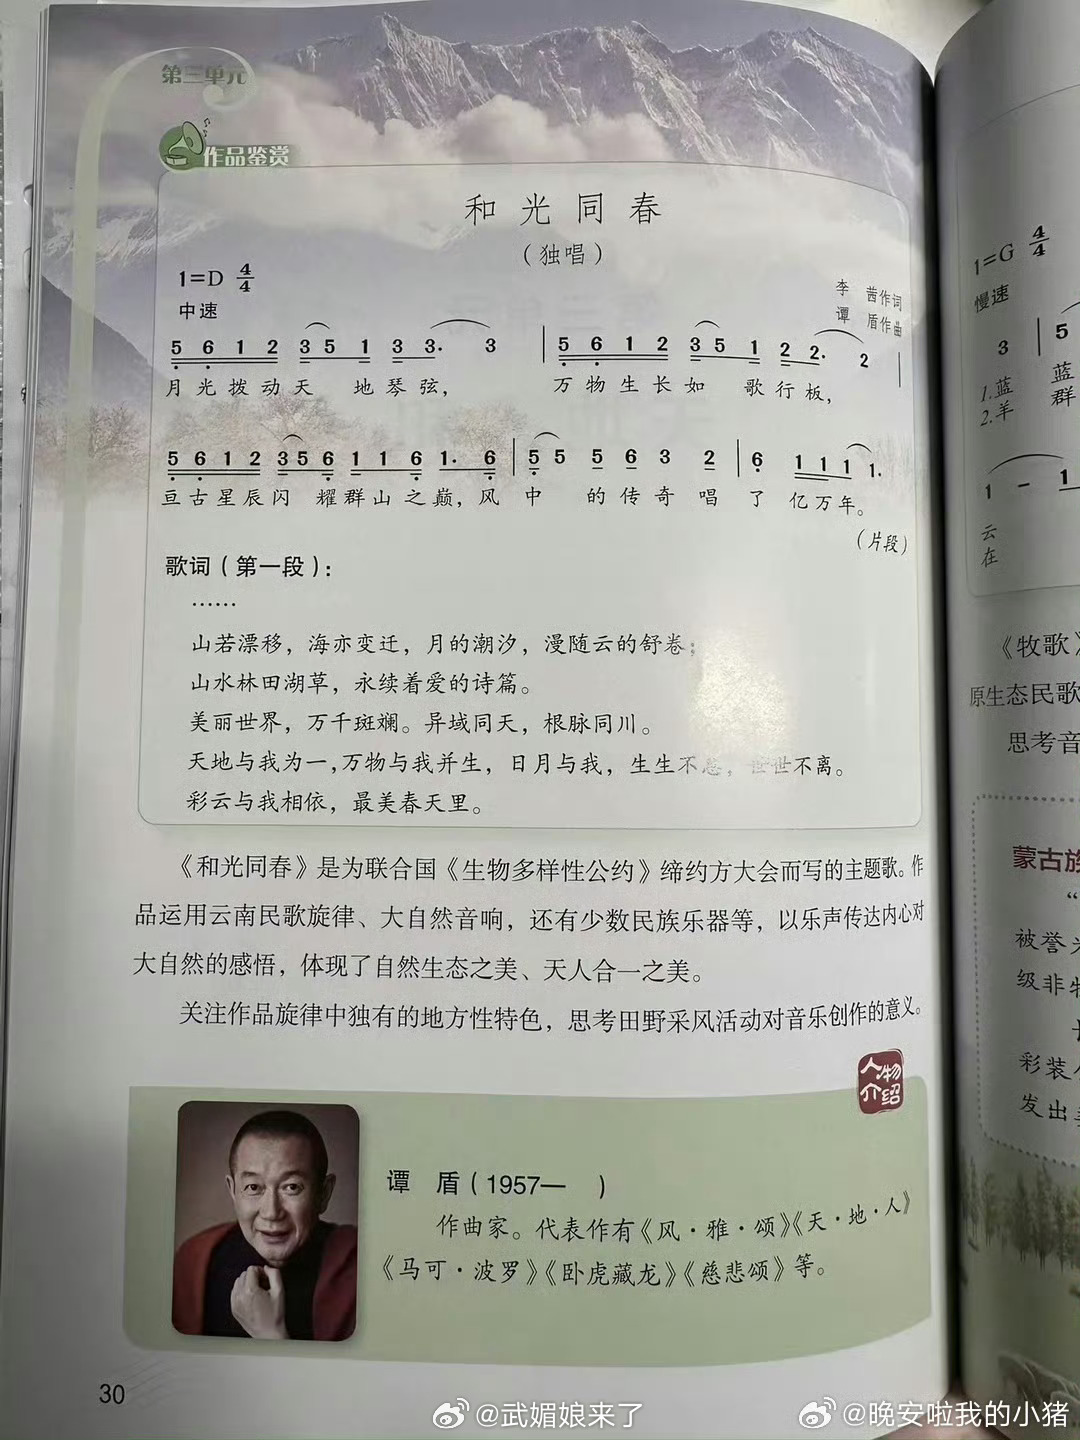 第三单元
作品鉴赏
和光同春
（独唱）
1=D 4/4
中速
李 茜作词
谭 盾作曲
5 6 1 2 3 5 1 3 3· 3 | 5 6 1 2 3 5 1 2 2· 2 |
月光拨动天 地琴弦， 万物生长如 歌行板，
5 6 1 2 3 5 6 1 1 6 1· 6 | 5 5 5 6 3 2 | 6 1 1 1 1·
亘古星辰闪 耀群山之巅，风 中 的传奇唱 了 亿万年。
（片段）
歌词（第一段）：
……
山若漂移，海亦变迁，月的潮汐，漫随云的舒卷；
山水林田湖草，永续着爱的诗篇。
美丽世界，万千斑斓。异域同天，根脉同川。
天地与我为一，万物与我并生，日月与我，生生不息，世世不离。
彩云与我相依，最美春天里。
《和光同春》是为联合国《生物多样性公约》缔约方大会而写的主题歌。作
品运用云南民歌旋律、大自然音响，还有少数民族乐器等，以乐声传达内心对
大自然的感悟，体现了自然生态之美、天人合一之美。
关注作品旋律中独有的地方性特色，思考田野采风活动对音乐创作的意义。
人物
介绍
谭 盾（1957— ）
作曲家。代表作有《风·雅·颂》《天·地·人》
《马可·波罗》《卧虎藏龙》《慈悲颂》等。
30
1=G 4/4
慢速
3 | 5
1.蓝 蓝
2.羊 群
1 - 1
云
在
《牧歌》
原生态民歌
思考音
蒙古族
“
被誉为
级非物
彩装
发出
@武媚娘来了
@晚安啦我的小猪